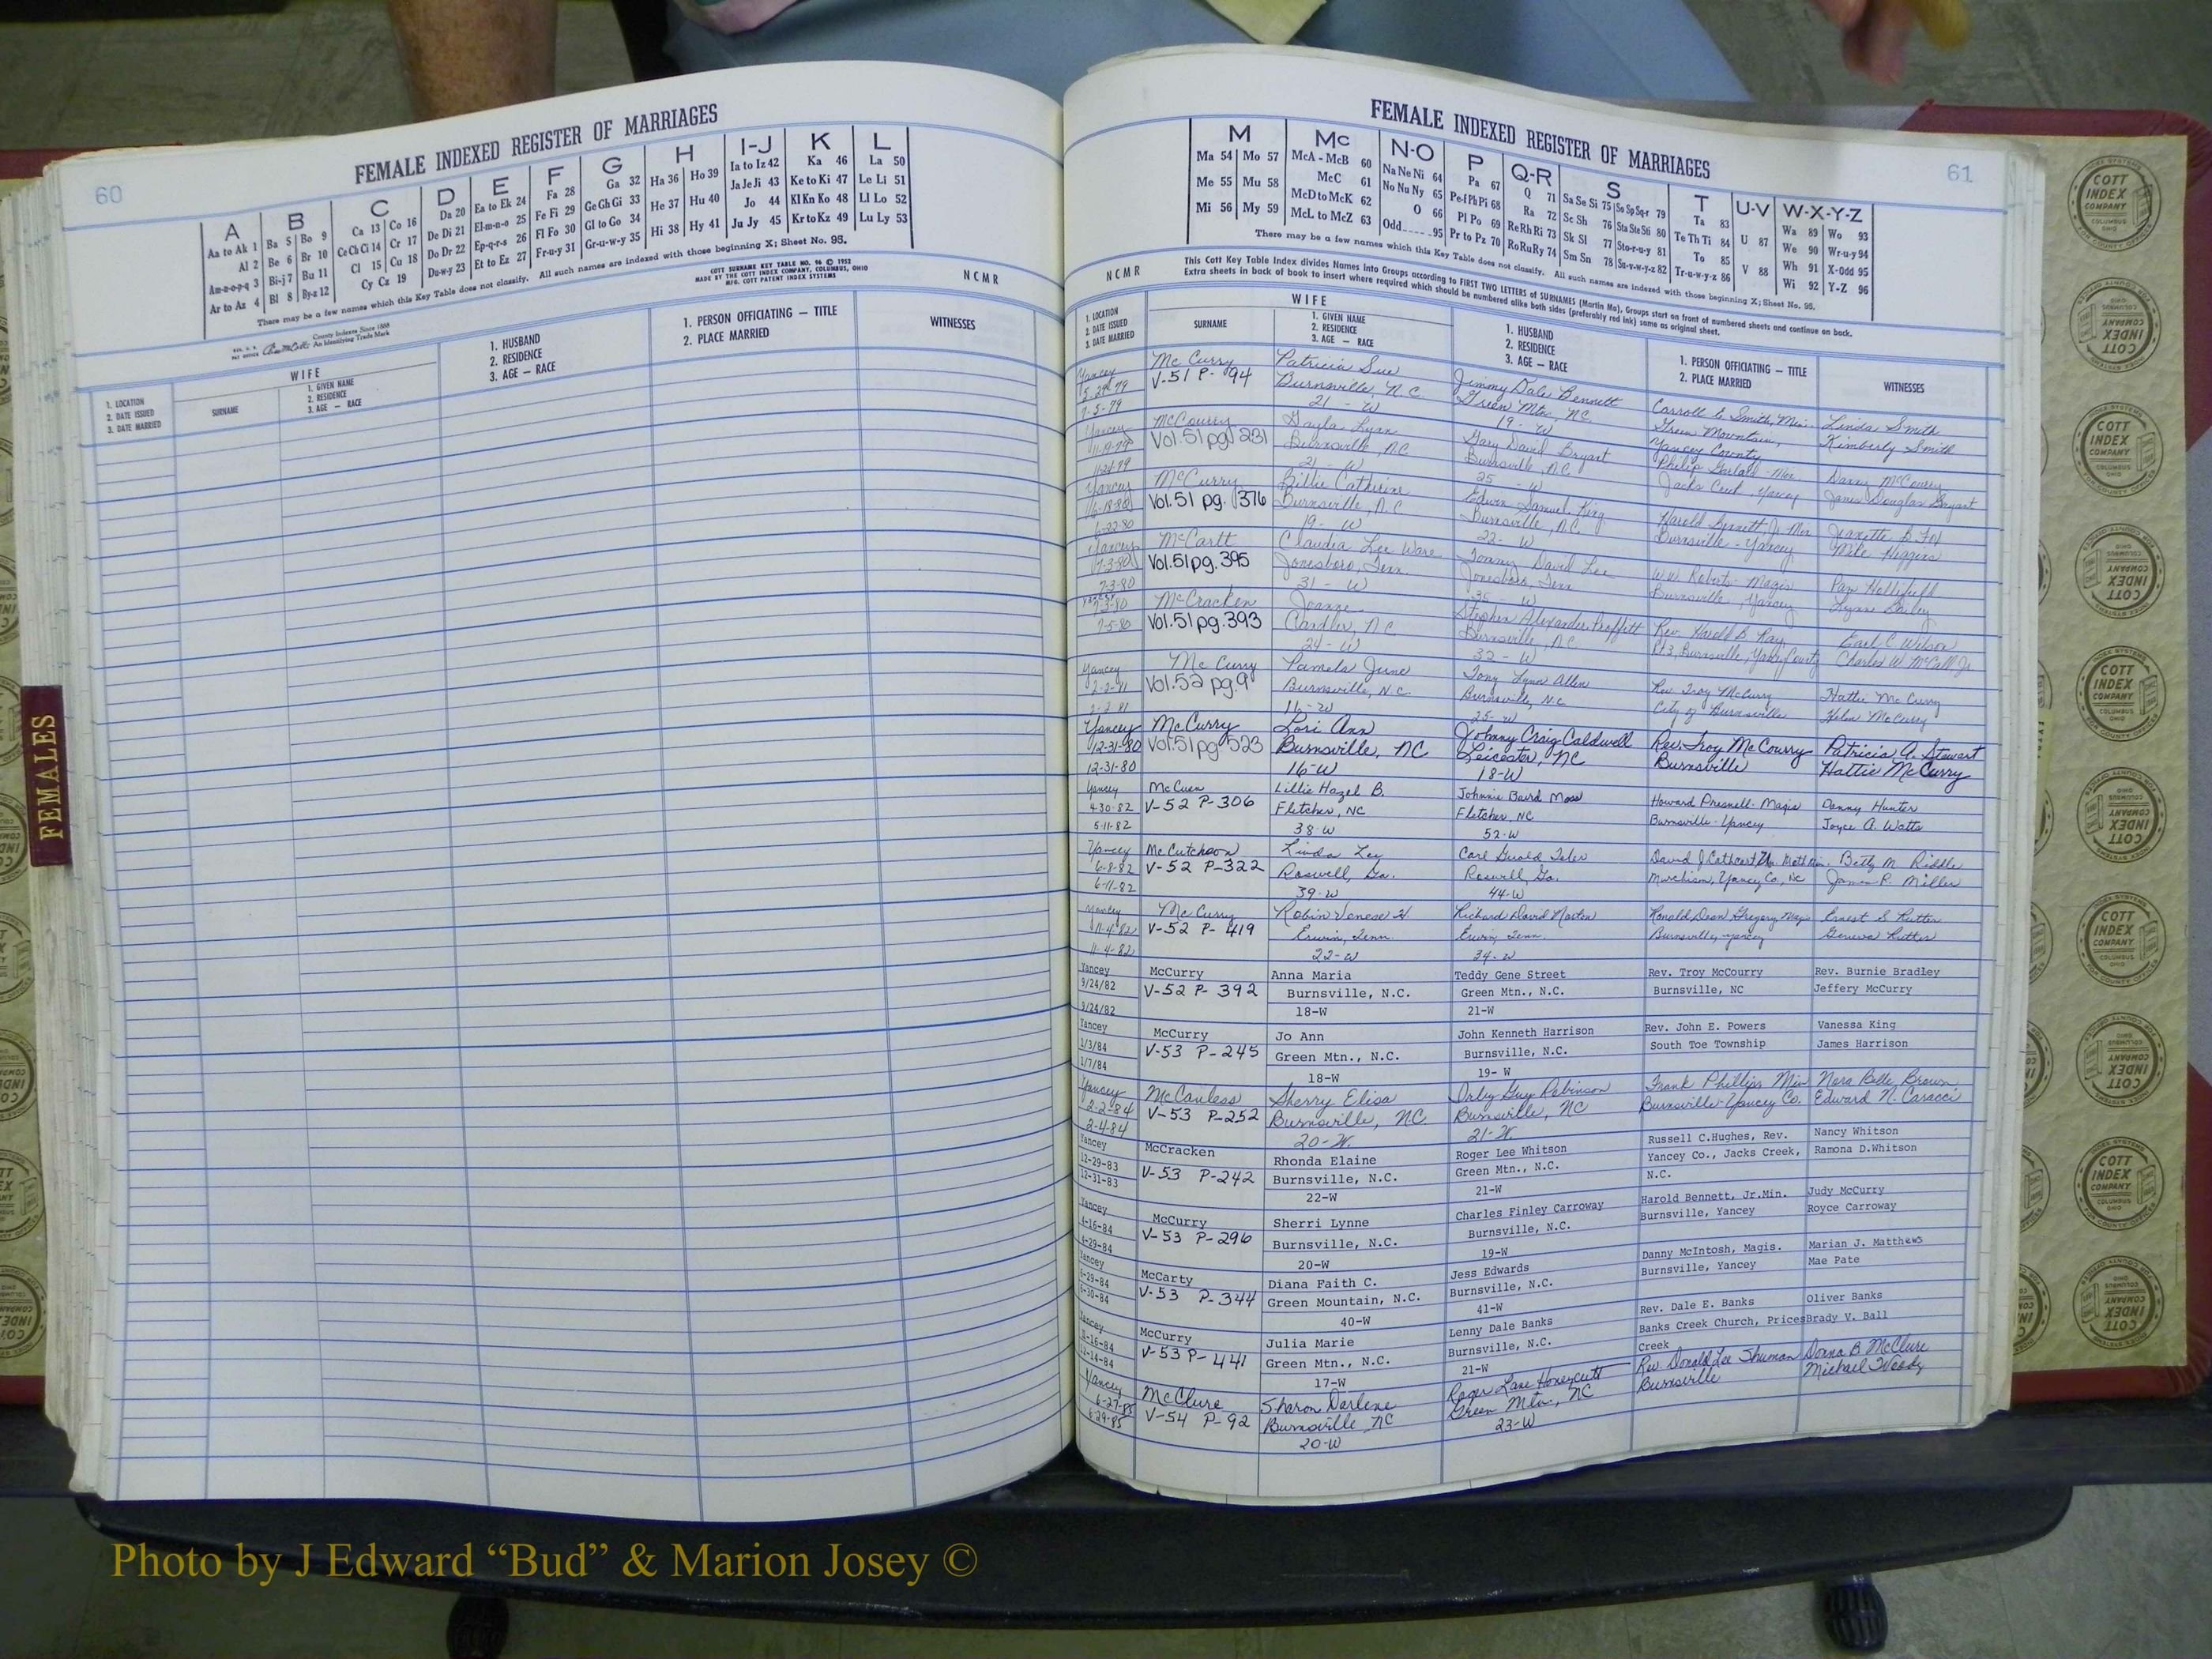 60
FEMALE INDEXED REGISTER OF MARRIAGES
A B C D E F G H I-J K L
Aa to Ak 1 Ba 5 Bo 9 Ca 13 Co 16 Da 20 Ea to Ek 24 Fa 28 Ga 32 Ha 36 Ho 39 Ia to Iz 42 Ka 46 La 50
Al 2 Be 6 Br 10 Ce Ch Ci 14 Cr 17 De Di 21 El-m-n-o 25 Fe Fi 29 Ge Gh Gi 33 He 37 Hu 40 Ja Je Ji 43 Ke to Ki 47 Le Li 51
Am-n-o-p-q 3 Bi-j 7 Bu 11 Cl 15 Cu 18 Do Dr 22 Ep-q-r-s 26 Fl Fo 30 Gl to Go 34 Hi 38 Hy 41 Jo 44 Kl Kn Ko 48 Ll Lo 52
Ar to Az 4 Bl 8 By-z 12 Cy Cz 19 Du-w-y 23 Et to Ez 27 Fr-u-y 31 Gr-u-w-y 35 Ju Jy 45 Kr to Kz 49 Lu Ly 53
There may be a few names which this Key Table does not classify. All such names are indexed with those beginning X; Sheet No. 95.
County Indexes Since 1888
An Identifying Trade Mark
COTT SURNAME KEY TABLE NO. 96 © 1952
MADE BY THE COTT INDEX COMPANY, COLUMBUS, OHIO
MFG. COTT PATENT INDEX SYSTEMS
NCMR
1. LOCATION
2. DATE ISSUED
3. DATE MARRIED
WIFE
SURNAME
1. GIVEN NAME
2. RESIDENCE
3. AGE — RACE
1. HUSBAND
2. RESIDENCE
3. AGE — RACE
1. PERSON OFFICIATING — TITLE
2. PLACE MARRIED
WITNESSES
FEMALES
61
FEMALE INDEXED REGISTER OF MARRIAGES
M Mc N-O P Q-R S T U-V W-X-Y-Z
Ma 54 Mo 57 McA - McB 60 Na Ne Ni 64 Pa 67 Q 71 Sa Se Si 75 So Sp Sq-r 79 Ta 83 U 87 Wa 89 Wo 93
Me 55 Mu 58 McC 61 No Nu Ny 65 Pe-f Ph Pi 68 Ra 72 Sc Sh 76 Sta Ste Sti 80 Te Th Ti 84 V 88 We 90 Wr-u-y 94
Mi 56 My 59 McD to McK 62 O 66 Pl Po 69 Re Rh Ri 73 Sk Sl 77 Sto-r-u-y 81 To 85 Wh 91 X-Odd 95
McL to McZ 63 Odd 95 Pr to Pz 70 Ro Ru Ry 74 Sm Sn 78 Su-v-w-y-z 82 Tr-u-w-y-z 86 Wi 92 Y-Z 96
There may be a few names which this Key Table does not classify. All such names are indexed with those beginning X; Sheet No. 95.
NCMR
This Cott Key Table Index divides Names into Groups according to FIRST TWO LETTERS of SURNAMES (Martin Ma). Groups start on front of numbered sheets and continue on back.
Extra sheets in back of book to insert where required which should be numbered alike both sides (preferably red ink) same as original sheet.
1. LOCATION
2. DATE ISSUED
3. DATE MARRIED
WIFE
SURNAME
1. GIVEN NAME
2. RESIDENCE
3. AGE — RACE
1. HUSBAND
2. RESIDENCE
3. AGE — RACE
1. PERSON OFFICIATING — TITLE
2. PLACE MARRIED
WITNESSES
Yancey McCurry Patricia Sue Jimmy Dale Bennett Carroll C. Smith, Min. Linda Smith
V-51 P-94 Burnsville, N.C. Green Mtn., NC Green Mountain, Kimberly Smith
7-5-79 21 - W 19 - W Yancey County
Yancey McCourry Gayla Lynn Gary David Bryant Danny McCourry
Vol.51 pg. 231 Burnsville, NC Burnsville, NC Jacks Creek, Yancey James Douglas Bryant
21 - W 25 - W
Yancey McCurry Billie Catherine Edwin Samuel King Harold Bennett Jr. Min
6-18-80 Vol.51 pg. 376 Burnsville, N.C. Burnsville, N.C. Burnsville - Yancey Mike Higgins
6-22-80 19 - W 22 - W
Yancey Claudia Lee Ware Tommy David Lee W.W. Roberts - Magis
7-3-80 Vol.51 pg. 395 Jonesboro, Tenn. Jonesboro, Tenn Burnsville, Yancey
7-3-80 31 - W 35 - W
7-3-80 McCracken Joanne Stephen Alexander Proffitt Rev. Harold B. Ray Earl C. Wilson
7-5-80 Vol.51 pg. 393 Candler, NC Burnsville, NC Rt 3, Burnsville, Yancey County Charles W. McCall Jr
24 - W 32 - W
Yancey McCurry Pamela June Tony Lynn Allen Rev. Troy McCurry Hattie McCurry
Vol.52 pg. 9 Burnsville, N.C. Burnsville, N.C. City of Burnsville Helen McCurry
16 - W 25 - W
Yancey McCurry Lori Ann Johnny Craig Caldwell Rev. Troy McCourry Patricia A. Stewart
12-31-80 Vol.51 pg. 523 Burnsville, NC Leicester, NC Burnsville Hattie McCurry
12-31-80 16-W 18-W
Yancey McCuen Lillie Hazel B. Johnnie Baird Moss Howard Presnell - Magis Danny Hunter
4-30-82 V-52 P-306 Fletcher, NC Fletcher, NC Burnsville - Yancey Joyce A. Watts
5-11-82 38-W 52-W
Yancey McCutcheon Linda Lee Betty M. Riddle
6-8-82 V-52 P-322 Roswell, Ga. Roswell, Ga. Yancey Co., NC James R. Miller
6-11-82 39-W 44-W
Yancey McCurry Richard David Ronald Dean Gregory Magis
11-4-82 V-52 P-419 Erwin, Tenn. Erwin, Tenn. Burnsville, Yancey
11-4-82 22-W 34-W
Yancey McCurry Anna Maria Teddy Gene Street Rev. Troy McCourry Rev. Burnie Bradley
9/24/82 V-52 P-392 Burnsville, N.C. Green Mtn., N.C. Burnsville, NC Jeffery McCurry
9/24/82 18-W 21-W
Yancey McCurry Jo Ann John Kenneth Harrison Rev. John E. Powers Vanessa King
1/3/84 V-53 P-245 Green Mtn., N.C. Burnsville, N.C. South Toe Township James Harrison
1/7/84 18-W 19- W
Yancey McCanless Sherry Elisa Orley Guy Robinson Frank Phillips Min Nora Belle Brown
2-2-84 V-53 P-252 Burnsville, NC. Burnsville, NC Burnsville-Yancey Co. Edward N. Caracci
2-4-84 20-W. 21-W.
Yancey McCracken Rhonda Elaine Roger Lee Whitson Russell C.Hughes, Rev. Nancy Whitson
12-29-83 V-53 P-242 Burnsville, N.C. Green Mtn., N.C. Yancey Co., Jacks Creek, Ramona D.Whitson
12-31-83 22-W 21-W N.C.
Yancey McCurry Sherri Lynne Charles Finley Carroway Harold Bennett, Jr.Min. Judy McCurry
4-16-84 V-53 P-296 Burnsville, N.C. Burnsville, N.C. Burnsville, Yancey Royce Carroway
4-29-84 20-W 19-W
Yancey McCarty Diana Faith C. Jess Edwards Danny McIntosh, Magis. Marian J. Matthews
6-29-84 V-53 P-344 Green Mountain, N.C. Burnsville, N.C. Burnsville, Yancey Mae Pate
6-30-84 40-W 41-W
Yancey McCurry Julia Marie Lenny Dale Banks Rev. Dale E. Banks Oliver Banks
V-53 P-441 Green Mtn., N.C. Burnsville, N.C. Banks Creek Church, Prices Brady V. Ball
12-14-84 17-W 21-W Creek
Yancey McClure Sharon Darlene Roger Lane Honeycutt Rev. Donald Lee Shuman Donna B McClure
6-27-85 V-54 P-92 Burnsville, NC Green Mtn., NC Burnsville Michael Woody
6-29-85 20-W 23-W
COTT INDEX COMPANY COLUMBUS OHIO
INDEX SYSTEMS FOR COUNTY OFFICES
Photo by J Edward “Bud” & Marion Josey ©